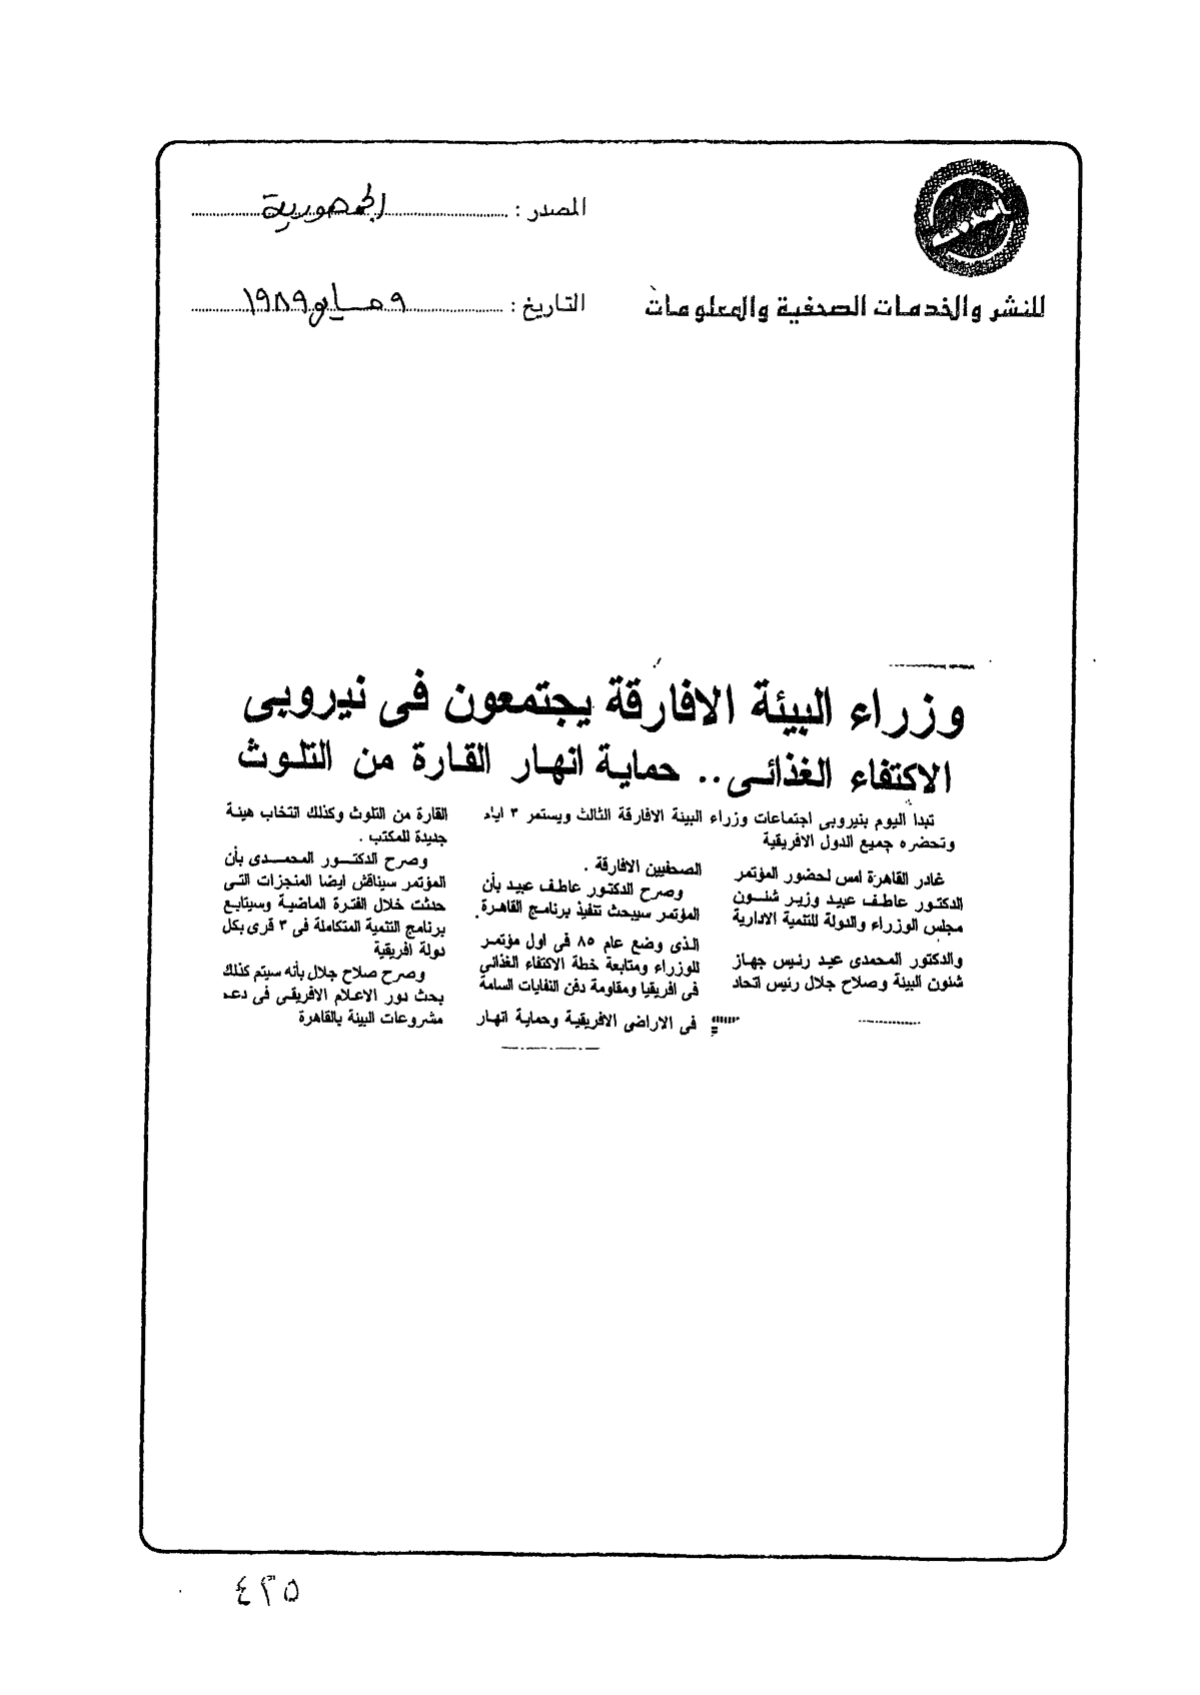 المصدر : الجمهورية
للنشر والخدمات الصحفية والمعلومات
التاريخ : ٩ مايو ١٩٨٩
وزراء البيئة الافارقة يجتمعون فى نيروبى
الاكتفاء الغذائى .. حماية انهار القارة من التلوث
تبدا اليوم بنيروبى اجتماعات وزراء البيئة الافارقة الثالث ويستمر ٣ ايام
وتحضره جميع الدول الافريقية
غادر القاهرة امس لحضور المؤتمر
الدكتور عاطف عبيد وزير شئون
مجلس الوزراء والدولة للتنمية الادارية
والدكتور المحمدى عيد رئيس جهاز
شئون البيئة وصلاح جلال رئيس اتحاد
الصحفيين الافارقة .
وصرح الدكتور عاطف عبيد بأن
المؤتمر سيبحث تنفيذ برنامج القاهرة
الذى وضع عام ٨٥ فى اول مؤتمر
للوزراء ومتابعة خطة الاكتفاء الغذائى
فى افريقيا ومقاومة دفن النفايات السامة
فى الاراضى الافريقية وحماية انهار
القارة من التلوث وكذلك انتخاب هيئة
جديدة للمكتب .
وصرح الدكتور المحمدى بأن
المؤتمر سيناقش ايضا المنجزات التى
حدثت خلال الفترة الماضية وسيتابع
برنامج التنمية المتكاملة فى ٣ قرى بكل
دولة افريقية
وصرح صلاح جلال بأنه سيتم كذلك
بحث دور الاعلام الافريقى فى دعم
مشروعات البيئة بالقاهرة